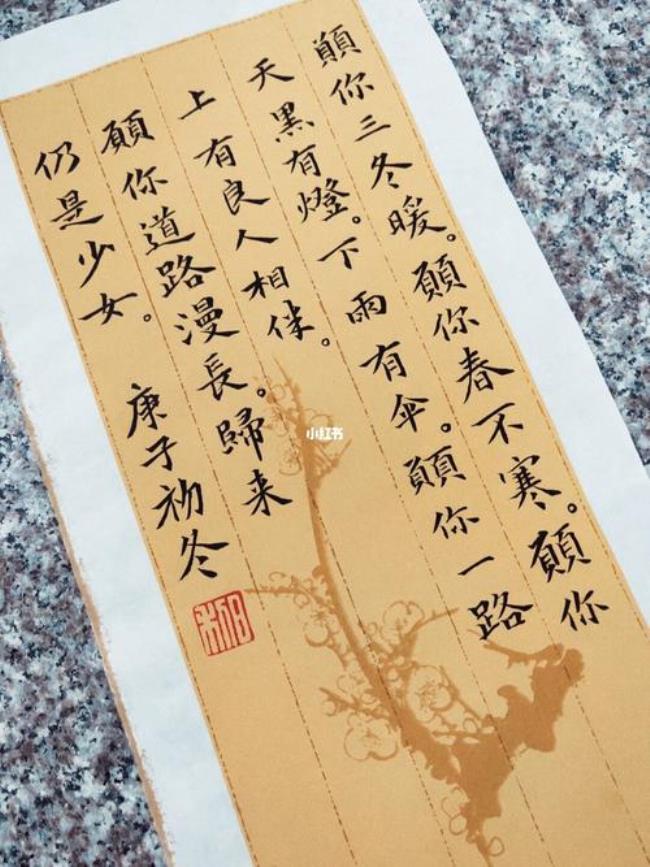 願你三冬暖。願你春不寒。願你
天黑有燈。下雨有傘。願你一路
上有良人相伴。
願你道路漫長。歸来
仍是少女。
庚子初冬
小红书